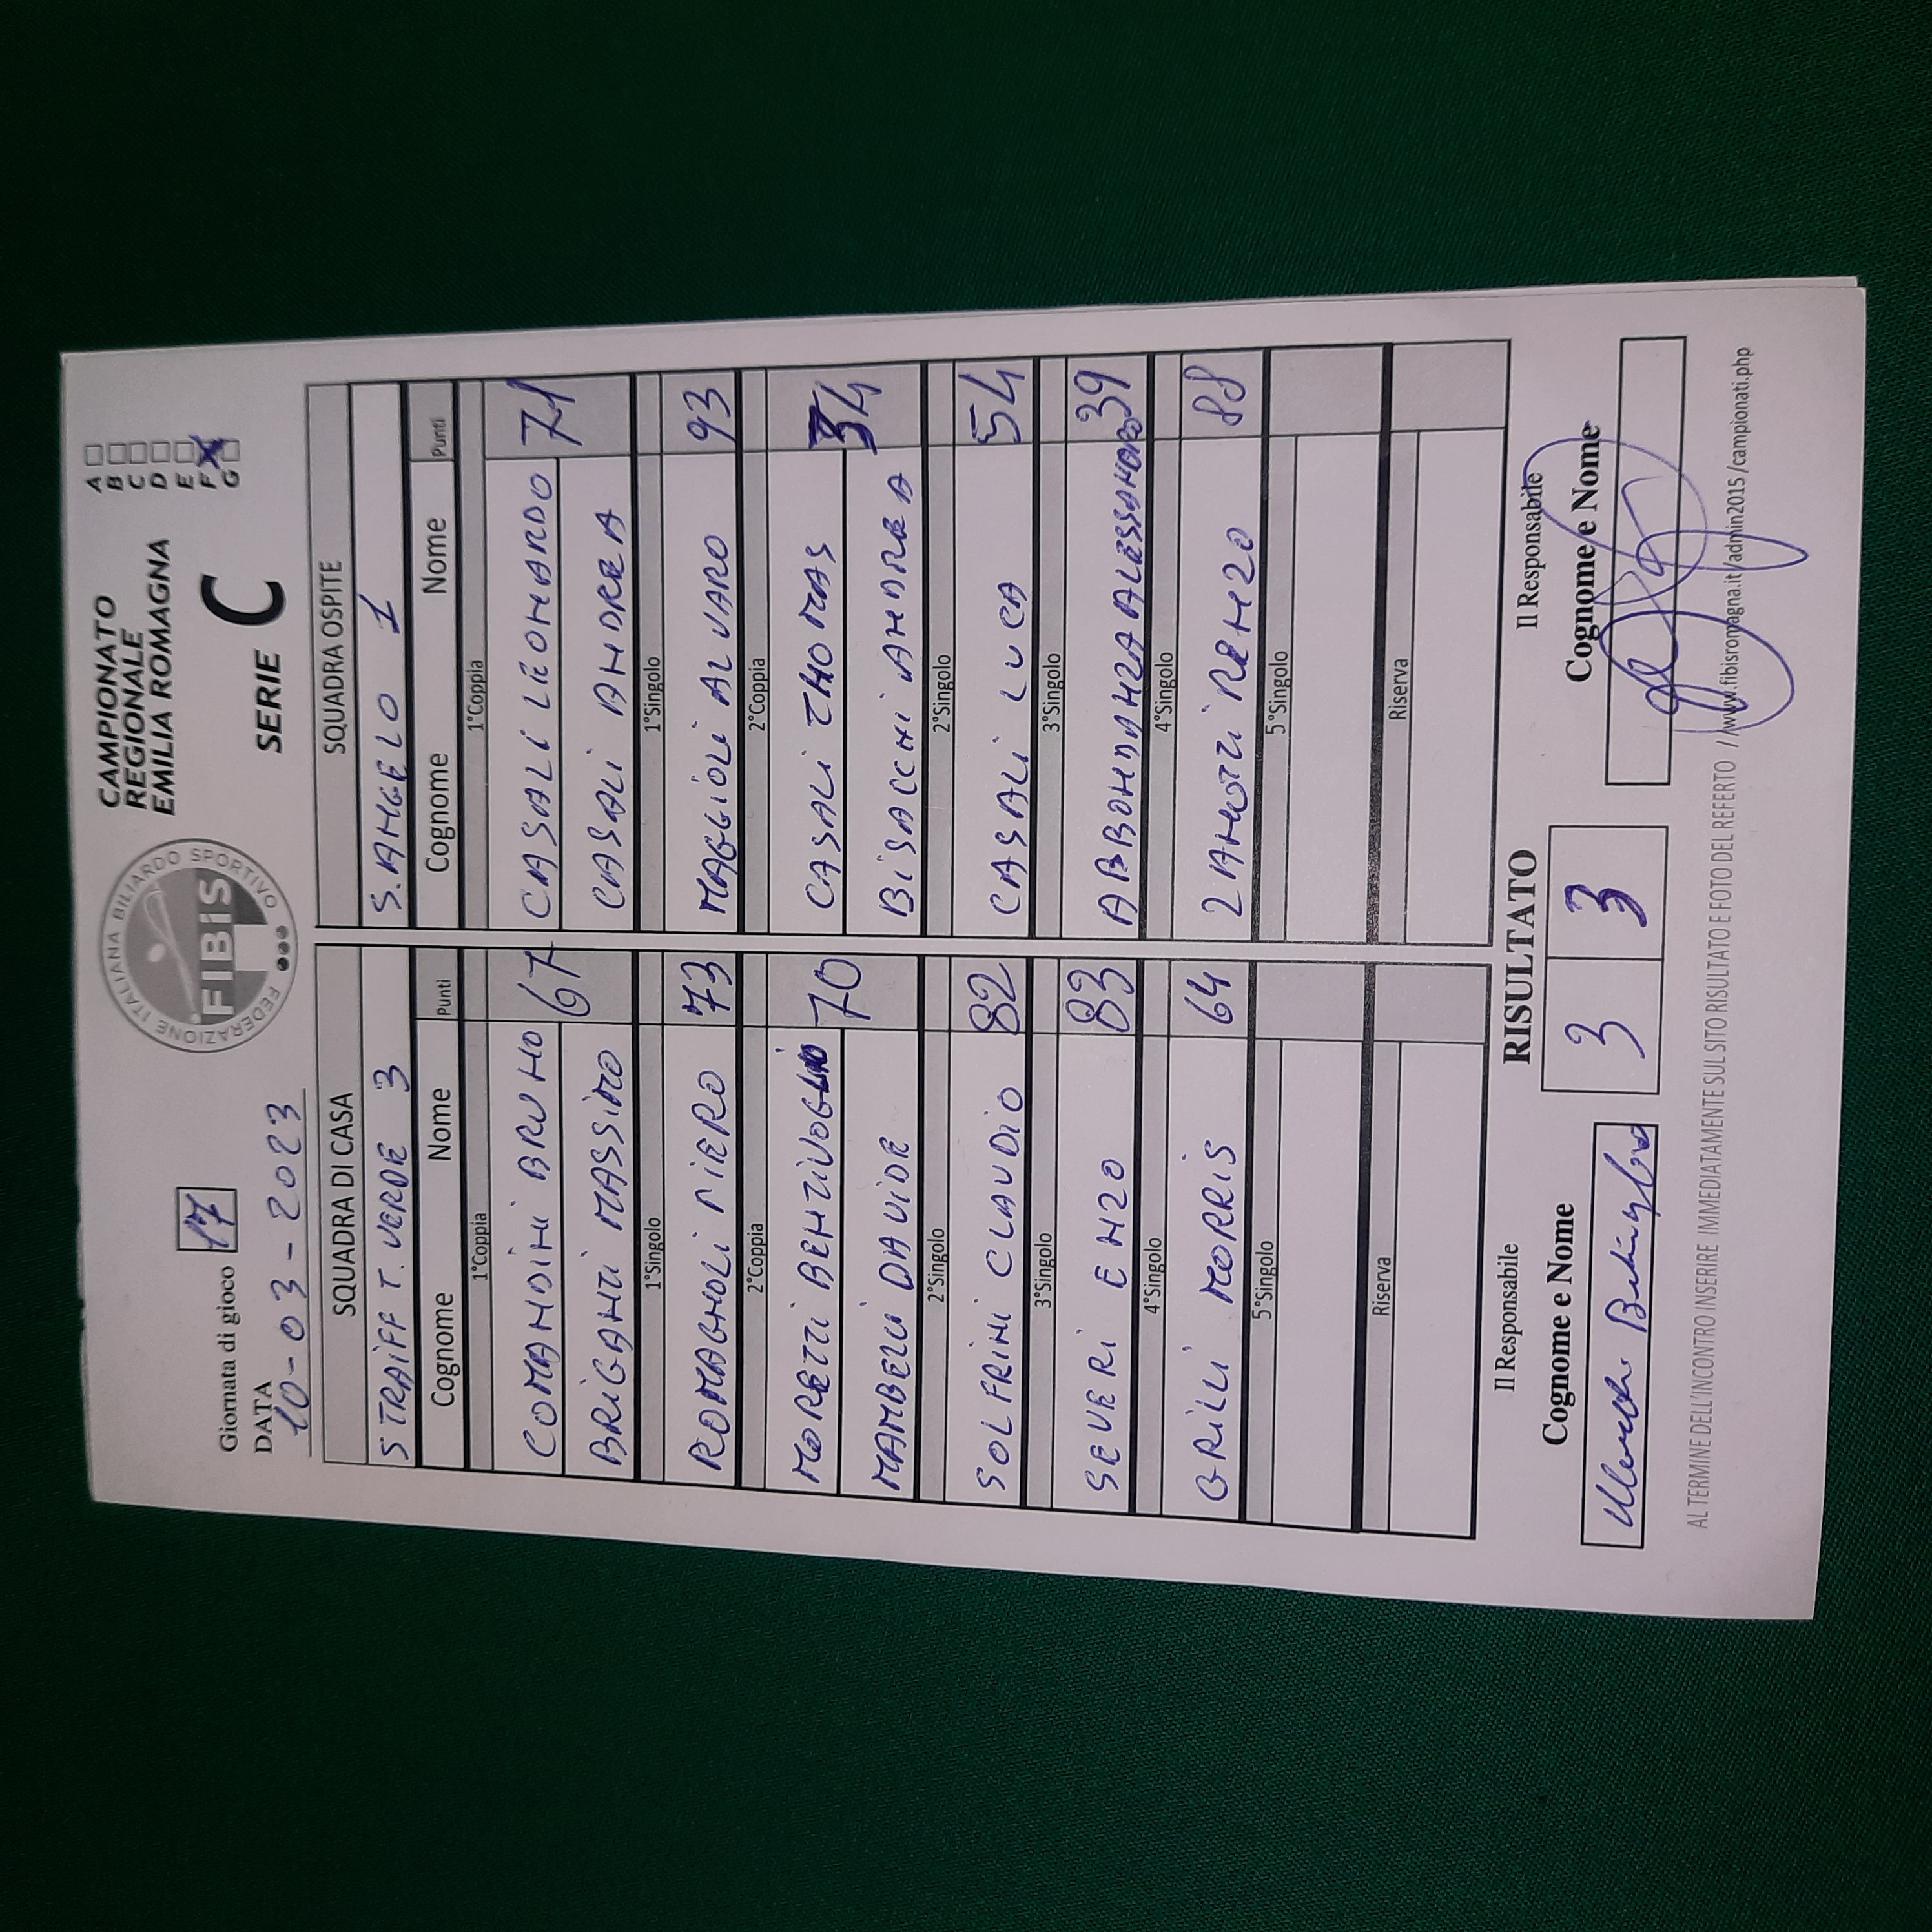 Giornata di gioco 17
DATA
10-03-2023
FEDERAZIONE ITALIANA BILIARDO SPORTIVO
FIBiS
CAMPIONATO
REGIONALE
EMILIA ROMAGNA
SERIE C
A
B
C
D
E
F X
G
SQUADRA DI CASA
SQUADRA OSPITE
STRAIFF T. VERDE 3
S. ANGELO 1
Cognome Nome Punti
Cognome Nome Punti
1°Coppia
1°Coppia
COMANDINI BRUNO 67
CASALI LEONARDO 71
BRIGANTI MASSIMO
CASALI ANDREA
1°Singolo
1°Singolo
ROMAGNOLI PIERO 73
MAGGIOLI ALVARO 93
2°Coppia
2°Coppia
MORETTI BENTIVOGLIO 70
CASALI THOMAS 54
MAMBELLI DAVIDE
BISACCHI ANDREA
2°Singolo
2°Singolo
SOLFRINI CLAUDIO 82
CASALI LUCA 54
3°Singolo
3°Singolo
SEVERI ENZO 83
ABBONDANZA ALESSANDRO 39
4°Singolo
4°Singolo
GRILLI MORRIS 64
ZANOTTI RENZO 88
5°Singolo
5°Singolo
Riserva
Riserva
Il Responsabile
RISULTATO
Il Responsabile
Cognome e Nome
3 3
Cognome e Nome
AL TERMINE DELL'INCONTRO INSERIRE IMMEDIATAMENTE SUL SITO RISULTATO E FOTO DEL REFERTO //www.fibisromagna.it/admin2015/campionati.php